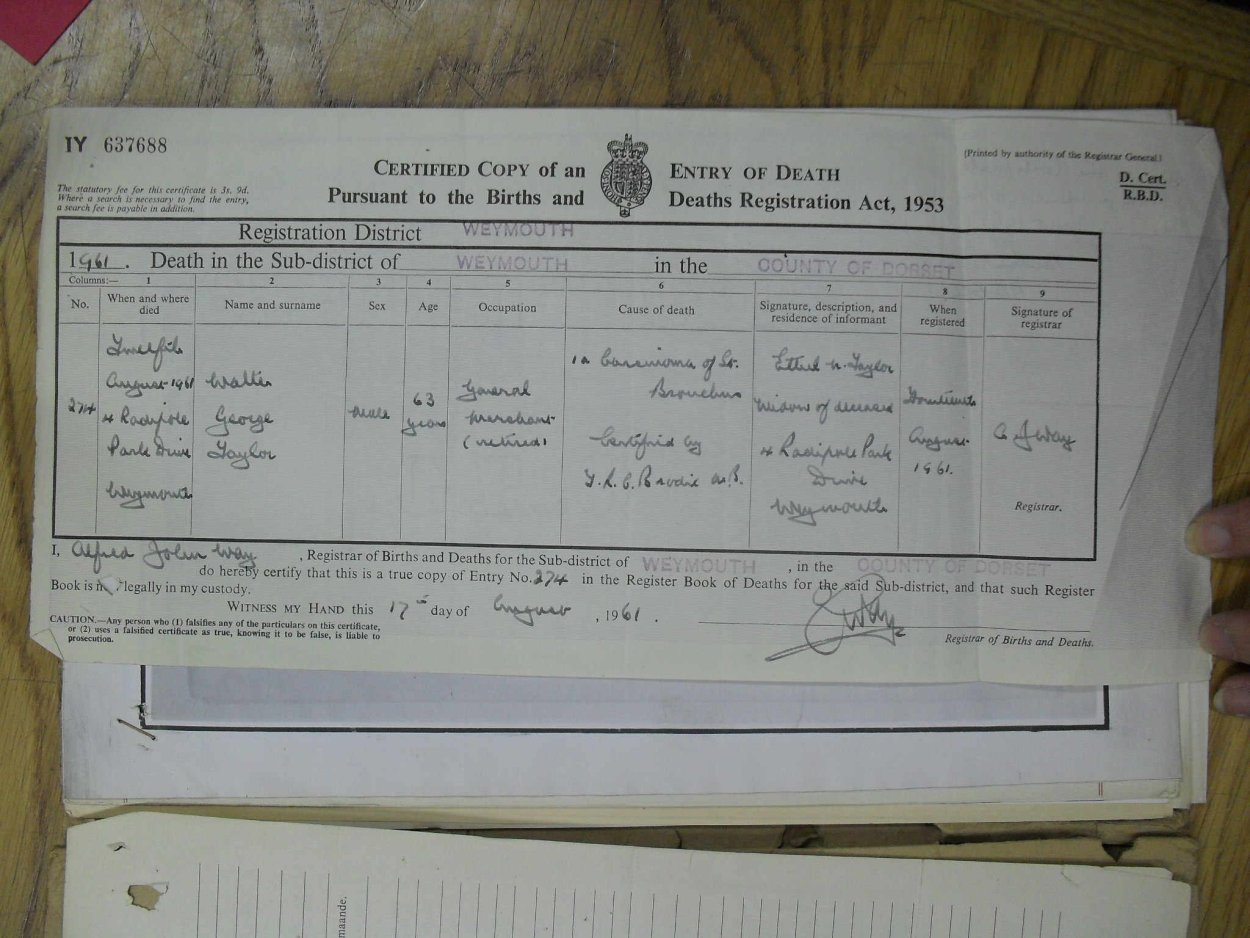 1Y 637688
CERTIFIED COPY of an ENTRY OF DEATH
Pursuant to the Births and Deaths Registration Act, 1953
(Printed by authority of the Registrar General.)
D. Cert.
R.B.D.
The statutory fee for this certificate is 3s. 9d.
Where a search is necessary to find the entry,
a search fee is payable in addition.
Registration District WEYMOUTH
1961. Death in the Sub-district of WEYMOUTH in the COUNTY OF DORSET
Columns:— 1 2 3 4 5 6 7 8 9
No.
When and where
died
Name and surname
Sex
Age
Occupation
Cause of death
Signature, description, and
residence of informant
When
registered
Signature of
registrar
274
Twelfth
August 1961
4 Radipole
Park Drive
Weymouth
Walter
George
Taylor
male
63
years
General
Merchant
(retired)
1a Carcinoma of Lt.
Bronchus
Certified by
Brodie M.B.
Ethel Taylor
Widow of deceased
4 Radipole Park
Drive
Weymouth
August
1961.
A J Way
Registrar.
I, Alfred John Way , Registrar of Births and Deaths for the Sub-district of WEYMOUTH , in the COUNTY OF DORSET
do hereby certify that this is a true copy of Entry No. 274 in the Register Book of Deaths for the said Sub-district, and that such Register
Book is legally in my custody.
WITNESS MY HAND this 17th day of August , 1961 .
CAUTION.—Any person who (1) falsifies any of the particulars on this certificate,
or (2) uses a falsified certificate as true, knowing it to be false, is liable to
prosecution.
Registrar of Births and Deaths.
maande.